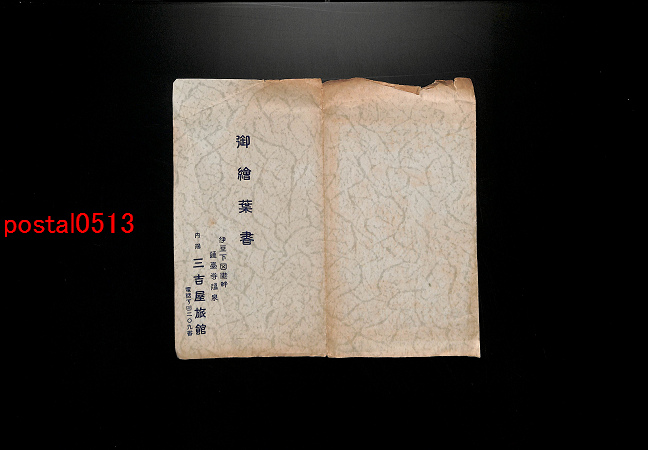 御繪葉書
伊豆下田港畔
蓮臺寺温泉
内湯 三吉屋旅館
電話下田二〇九番
postal0513